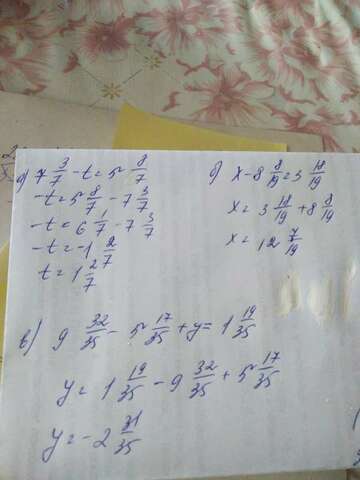 а) 7 3/7 - t = 5 8/7
-t = 5 8/7 - 7 3/7
-t = 6 1/7 - 7 3/7
-t = -1 2/7
t = 1 2/7
б) x - 8 8/19 = 3 18/19
x = 3 18/19 + 8 8/19
x = 12 7/19
в) 9 32/35 - 5 17/35 + y = 1 19/35
y = 1 19/35 - 9 32/35 + 5 17/35
y = -2 31/35